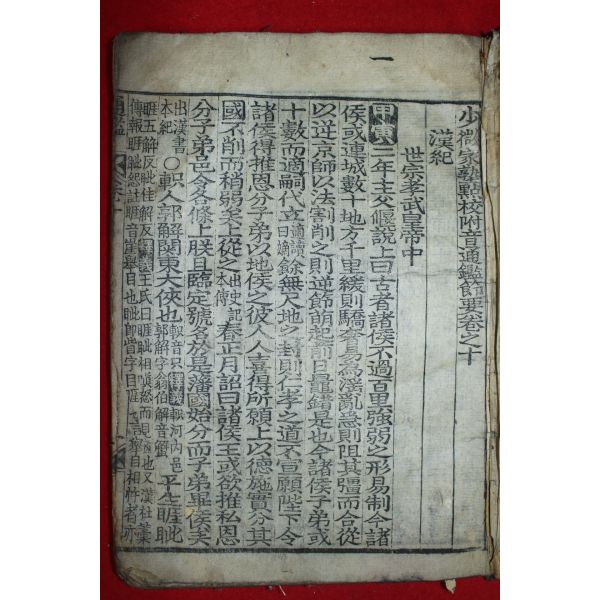 一
少微家塾點校附音通鑑節要卷之十
漢紀
世宗孝武皇帝中
甲寅二年主父偃說上曰古者諸侯不過百里强弱之形易制今諸
侯或連城數十地方千里緩則驕奢易爲淫亂急則阻其彊而合從
以逆京師以法割削之則逆節萌起前日鼂錯是也今諸侯子弟或
十數而適嗣代立適讀曰嫡餘無尺地之封則仁孝之道不宣願陛下令
諸侯得推恩分子弟以地侯之彼人人喜得所願上以德施實分其
國不削而稍弱矣上從之出史記本傳春正月詔曰諸侯王或欲推私恩
分子弟邑令各條上朕且臨定號名於是藩國始分而子弟畢侯矣
出漢書本紀○軹人郭解關東大俠也軹音只釋義軹河內邑郭解字翁伯解音蟹平生睚眦